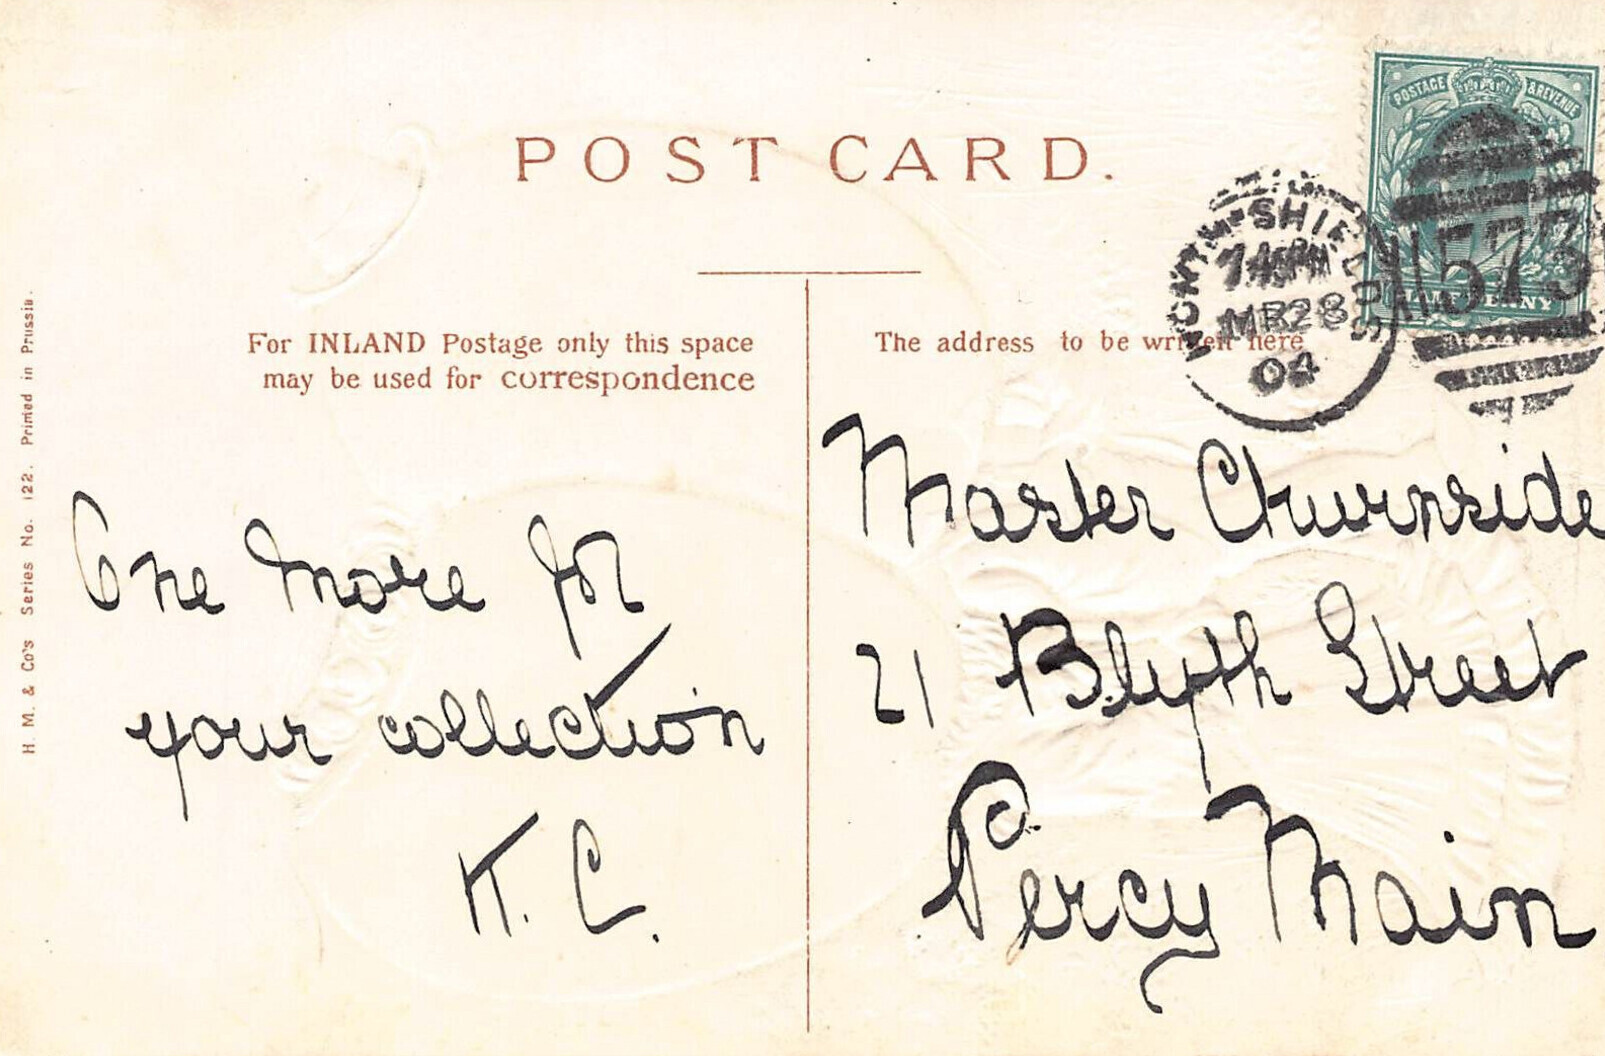 POST CARD.
POSTAGE & REVENUE
HALFPENNY
NORTH SHIELDS
MR 28
04
573
For INLAND Postage only this space
may be used for correspondence
The address to be written here
H. M. & Co's Series No. 122. Printed in Prussia.
One more for
your collection
K. C.
Master Churnside
21 Blyth Street
Percy Main